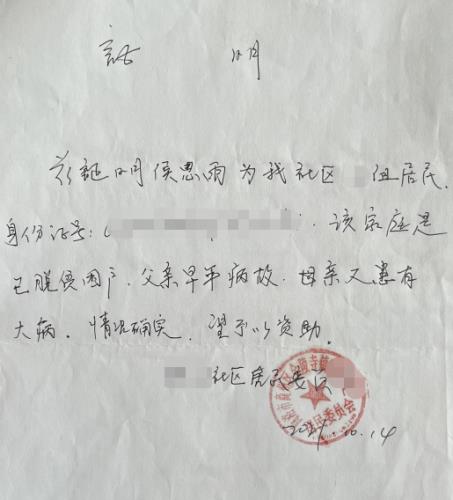 証 明
兹証明侯思雨为我社区 组居民,
身份证号: . 该家庭是
已脱贫困户,父亲早年病故.母亲又患有
大病,情况确实,望予以资助.
社区居民委员
居民委员会
10.14